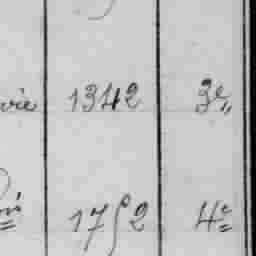 vie 1342 3e
1752 4e